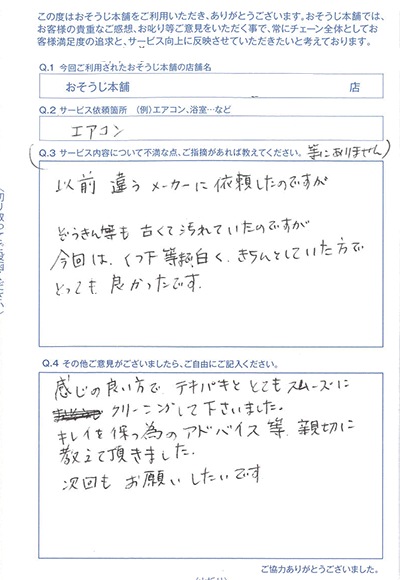 この度はおそうじ本舗をご利用いただき、ありがとうございます。おそうじ本舗では、
お客様の貴重なご感想、お叱り等ご意見をいただく事で、常にチェーン全体としてお
客様満足度の追求と、サービス向上に反映させていただきたいと考えております。
Q.1 今回ご利用されたおそうじ本舗の店舗名
おそうじ本舗 店
Q.2 サービス依頼箇所 (例)エアコン、浴室…など
エアコン
Q.3 サービス内容について不満な点、ご指摘があれば教えてください。
(特にありません)
以前 違う メーカーに依頼したのですが
ぞうきん等も 古くて汚れていたのですが
今回は、くつ下等も白く、きちんとしていた方で
とっても 良かったです.
Q.4 その他ご意見がございましたら、ご自由にご記入ください。
感じの良い方で テキパキと とてもスムーズに
クリーニングして下さいました。
キレイを保つ為のアドバイス等、親切に
教えて頂きました.
次回も お願い したいです
ご協力ありがとうございました。